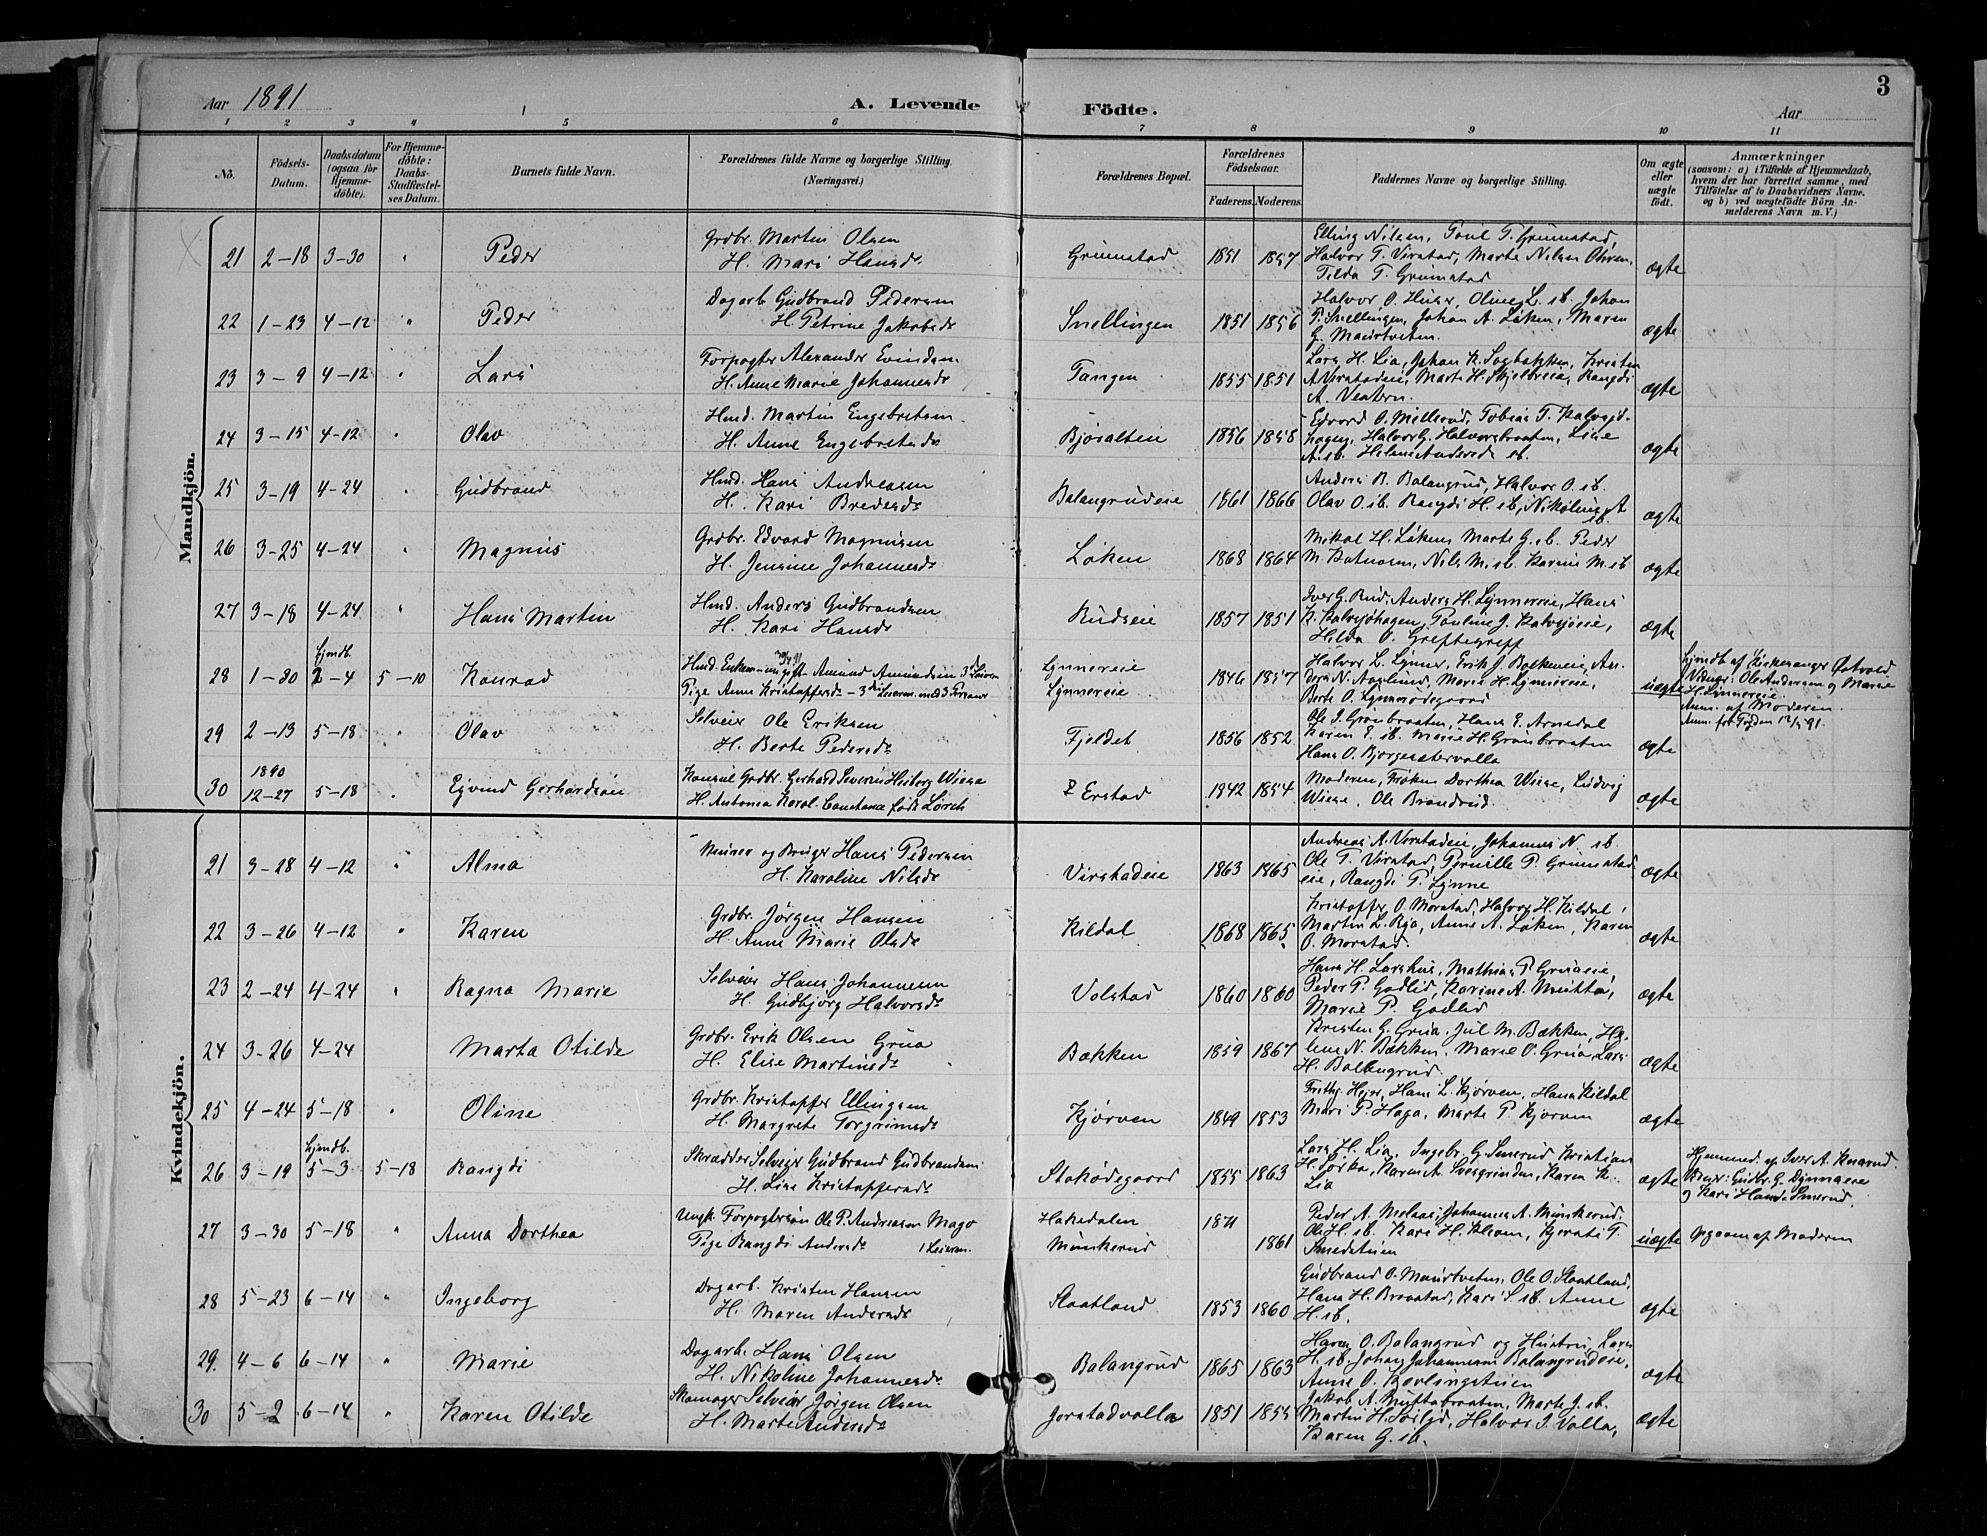 Aar 1891 A. Levende Födte. Aar 3
1 2 3 4 5 6 7 8 9 10 11
No. Födsels-Datum. Daabsdatum (ogsaa for Hjemmedöbte). For Hjemmedöbte: Daabs-Stadfæstelses Datum. Barnets fulde Navn. Forældrenes fulde Navne og borgerlige Stilling. (Næringsvei.) Forældrenes Bopæl. Forældrenes Födselsaar. Faderens. Moderens. Faddernes Navne og borgerlige Stilling. Om ægte eller uægte født. Anmærkninger (saasom: a) i Tilfælde af Hjemmedaab, hvem der har forrettet samme, med Tilföielse af to Daabsvidners Navne, og b) ved uægtefödte Börn Anmelderens Navn m. V.)
Mandkjön.
21 2-18 3-30 " Peder Grdbr. Martin Olsen
H. Mari Hansd. Grumstad 1851 1857 Elling Nilsen, Poul T. Grumstad,
Halvor T. Virstad, Marte Nilsen
Tilda T. Grumstad ægte
22 1-23 4-12 " Peder Dagarb. Gudbrand Pedersen
H. Petrine Jakobsd. Snellingen 1851 1856 Halvor O. Huser, Oline L. sb. Johan
P. Snellingen, Johan A. Løken, Maren
G. Maurtveten. ægte
23 3-9 4-12 " Lars Forpagter Alexander Evindsen
H. Anne Marie Johannesd. Tangen 1855 1851 Lars H. Lia, Johan K. Sagbakken, Kristen
A. Virstadeie, Marte H. Skjelbreie, Rangdi
A. Vestern. ægte
24 3-15 4-12 " Olav Hmd. Martin Engebretsen
H. Anne Engebretsd. Bjøralteie 1856 1858 Edvard O. Mellerud, Tobias T. Kalvsjø-
hagen, Halvor G. Halvorsbraaten, Lise
A. sb. Helene Andersd. sb. ægte
25 3-19 4-24 " Gudbrand Hmd. Hans Andreasen
H. Kari Bredesd. Balangrudeie 1861 1866 Anders B. Balangrud, Halvor O. sb.
Olav O. sb. Rangdi H. sb, Nikoline A
sb. ægte
26 3-25 4-24 " Magnus Grdbr. Edvard Magnusen
H. Jensine Johannesd. Løken 1868 1864 Mikal H. Løken, Marte G. sb. Peder
M. Nils M. sb. Karine M. sb ægte
27 3-18 4-24 " Hans Martin Hmd. Anders Gudbrandsen
H. Kari Hansd. Rudseie 1857 1851 Iver G. Rud, Anders H. Lynnereie, Hans
K. Kalvsjøhagen, Pauline J. Kalvsjøeie,
Hilda O. Greftegreff ægte
28 1-30 Hjmdb. 2-4 5-10 Konrad Hmd. Enkem. Amund Amundsen 3d Leierm.
Pige Anne Kristoffersd. - 3die Leierm. med 3 Personer Lynnereie
Lynnereie 1846 1857 Halvor L. Lynner, Erik J. Bolkeneie, An-
ders N. Aaslund, Marie H. Lynnereie,
Berte O. Lynnerødegaard uægte Hjmdb. af Kirkesanger Østvold
Vidner: Ole Andersen og Marie
H. Lynnereie.
Anm. af Moderen.
29 2-13 5-18 " Olav Selveier Ole Eriksen
H. Berte Pedersd. Fjeldet 1856 1852 Ole J. Grønbraaten, Hans E. Arnedal
Karen E. sb. Marie H. Grønbraaten
Hans O. ægte
30 1890 12-27 5-18 " Ejvind Gerhardson Konsul Grdbr. Gerhard Severin Heiberg Wiese
H. Antonia Karol. Constance født Lorch Erstad 1842 1854 Moderen, Frøken Dorthea Wiese, Ludvig
Wiese, Ole Brandrud. ægte
Kvindekjön.
21 3-28 4-12 " Alma Murer og Bruger Hans Pedersen
H. Karoline Nilsd. Virstadeie 1863 1865 Andreas A. Virstadeie, Johannes N. sb
Ole T. Virstad, Pernille P. Grumstad-
eie, Rangdi P. Lynne ægte
22 3-26 4-12 " Karen Grdbr. Jørgen Hansen
H. Anne Marie Olsd. Kildal 1868 1865 Kristoffer O. Morstad, Halvor H. Kildal,
Martin L. Anne A. Løken, Karen
O. Morstad. ægte
23 2-24 4-24 " Ragna Marie Selveier Hans Johannesen
H. Gudbjørg Halvorsd. Volstad 1860 1860 Hans H. Larshus, Mathias P. Gruaeie,
Peder P. Godlid, Karine A. Mutta,
Marie P. Godlid ægte
24 3-26 4-24 Marta Otilde Grdbr. Erik Olsen Grua
H. Elise Martinsd. Bækken 1859 1867 Kristen G. Grua, Jul M. Bækken, He-
lene N. Bækken, Marie O. Grua, Lars
H. Ballangrud. ægte
25 4-24 5-18 " Oline Grdbr. Kristoffer Ellingsen
H. Margrete Torgrimsd. Kjørven 1849 1853 Frithj. Hejer, Hans L. Kjørven, Hans Kildal
Mari P. Haga, Marte P. Kjørven ægte
26 3-19 Hjmdb. 5-3 5-18 Rangdi Skrædder Selveier Gudbrand Gudbrandsen
H. Lise Kristoffersd. Stokødegaard 1855 1863 Lars H. Lia, Ingebr. G. Smerud Kristian
H. Sørka, Karen A. Svesgrinden, Karen K.
Lia ægte Hjemmed. af Iver A. Knarud.
Vidner: Gudbr. G. Dynnaeie
og Kari Hansd. Smerud
27 3-30 5-18 " Anna Dorthea Ungk. Forpagtersøn Ole P. Andreasen Mago
Pige Rangdi Andersd. 1 Leierm. Hakadalen
Munkerud 1871 1861 Peder A. Melaas, Johannes A. Munkerud.
Ole H. sb. Kari H. Klevm, Kjersti T.
Smedstuen uægte Opgaven af Moderen
28 5-23 6-14 " Ingeborg Dagarb. Kristen Hansen
H. Maren Andersd. Slaatland 1853 1860 Gudbrand O. Maurtveten, Ole O. Slaatland,
Hans H. Braastad, Kari S. sb. Anne
H. sb. ægte
29. 4-6 6-14 " Marie Dagarb. Hans Olsen
H. Nikoline Johannesd. Balangrud 1865 1863 Hans O. Balangrud og Hustru, Lars
H. sb. Johan Johannesen Balangrudeie,
Anne O. ægte
30 5-2 6-14 " Karen Otilde Skomager Selveier Jørgen Olsen
H. Marte Andersd. Jorstadvolla 1851 1855 Jakob A. Muttabraaten, Marte J. sb.
Martin H. Halvor J. Volla,
Karen G. sb. ægte